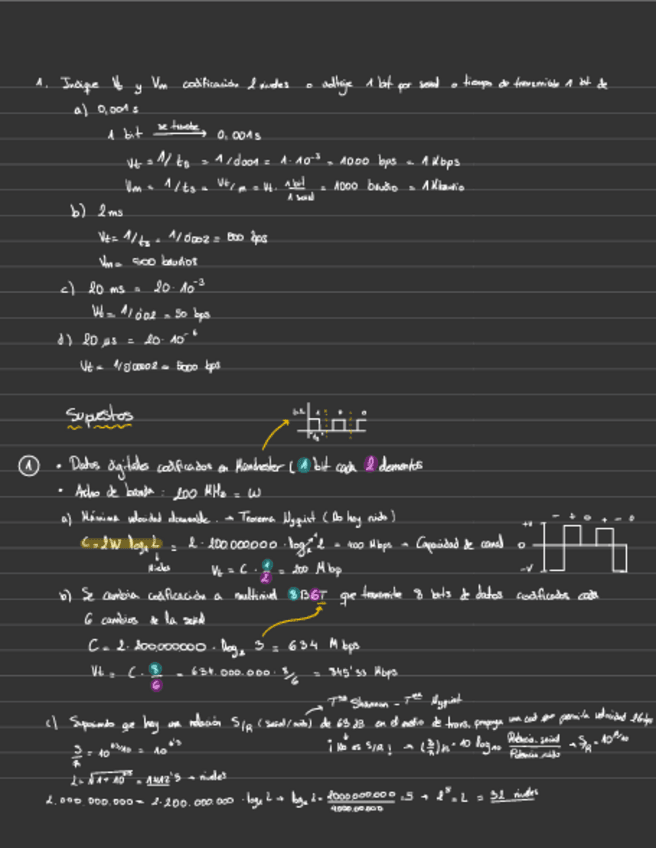 1. Indique Vt y Vm codificación 2 niveles o voltaje 1 bit por señal o tiempo de transmisión 1 bit de
a) 0,001 s
1 bit se transmite → 0,001s
Vt = 1/ts = 1/0'001 = 1·10⁻³ = 1000 bps = 1 Kbps
Vm = 1/ts = Vt/m = Vt · 1 bit / 1 señal = 1000 baudio = 1 Kbaudio
b) 2ms
Vt = 1/ts = 1/0'002 = 500 bps
Vm = 500 baudios
c) 20 ms = 20·10⁻³
Vt = 1/0'02 = 50 bps
d) 20 µs = 20·10⁻⁶
Vt = 1/0'0002 = 5000 bps
Supuestos
① • Datos digitales codificados en Manchester ( 1 bit cada 2 elementos
• Ancho de banda: 200 MHz = W
a) Máxima velocidad → Teorema Nyquist (No hay ruido)
C = 2W log₂ L = 2 · 200000000 · log₂ 2 = 400 Mbps → Capacidad de canal
Niveles
Vt = C · 1/2 = 200 Mbp
+V 0 -V
- + 0 - + 0
b) Se cambia codificación a multinivel 8B6T que transmite 8 bits de datos codificados cada
6 cambios de la señal
C = 2·200000000 · log₂ 3 = 634 Mbps
Vt = C · 8/6 = 634.000.000 · 8/6 = 845'33 Mbps
Tma Shannon - Tma Nyquist
c) Suponiendo que hay una relación S/R (señal/ruido) de 63 dB en el medio de trans.
¡No es S/R! → 10 log₁₀ Potencia señal / Potencia ruido
L = √1+10⁶'³ = 1412'5 → niveles
2.000.000.000 = 2·200.000.000 · log₂ L → log₂ L = 2000000000 / 400000000 = 5 → 2⁵ = L = 32 niveles